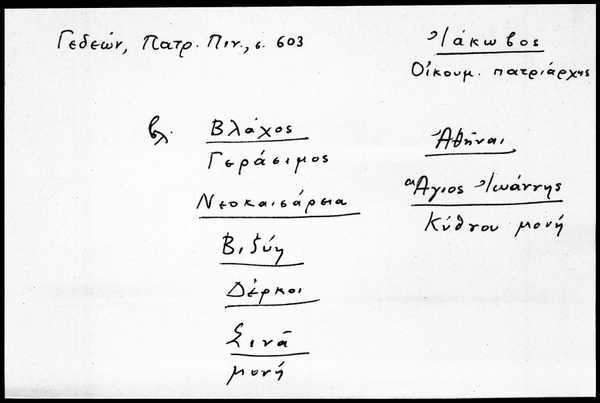 Γεδεών, Πατρ. Πιν., σ. 603
Ἰάκωβος
Οἰκουμ. πατριάρχης
βλ.
Βλάχος
Γεράσιμος
Νεοκαισάρεια
Βιζύη
Δέρκοι
Σινᾶ
μονή
Ἀθῆναι
Ἅγιος Ἰωάννης
Κύθνου μονή